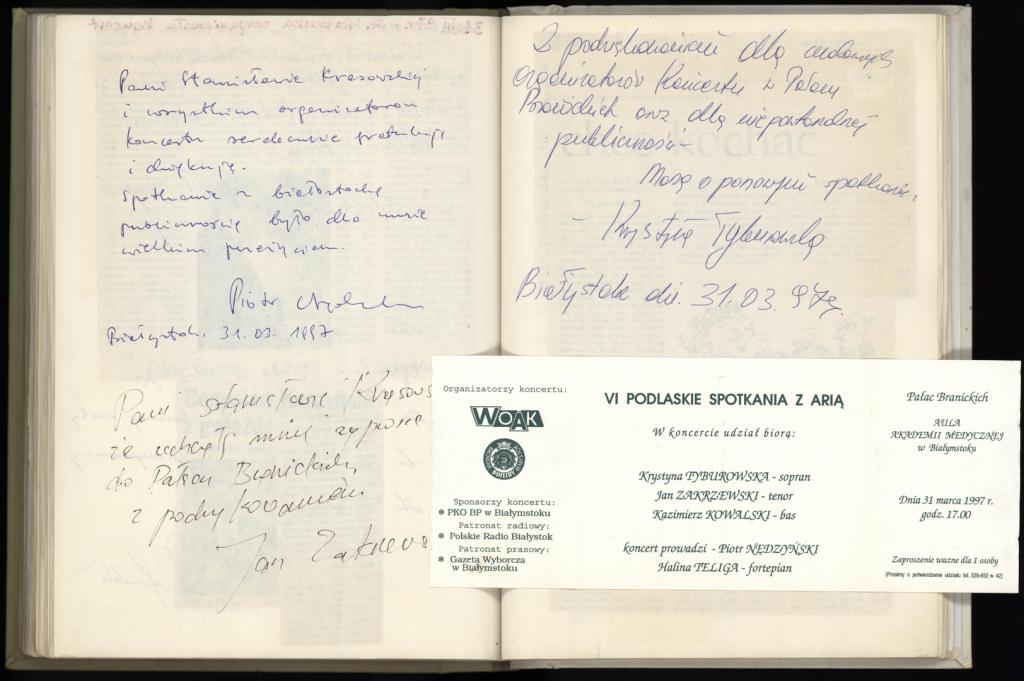 Pani Stanisławie Krasowskiej
i wszystkim organizatorom
koncertu serdecznie gratuluję
i dziękuję.
Spotkanie z białostocką
publicznością było dla mnie
wielkim przeżyciem.
Piotr
Białystok. 31.03. 1997
Pani Stanisławie
że zechciała mnie zaprosić
do Pałacu Branickich
z podziękowaniem
Jan
Z podziękowaniem dla
organizatorów Koncertu w Pałacu
Branickich oraz dla
publiczności –
Maria o ponownym spotkaniu
– Krystyna Tyburowska
Białystok dn. 31.03.97r.
Organizatorzy koncertu:
WOAK
Sponsorzy koncertu:
PKO BP w Białymstoku
Patronat radiowy:
Polskie Radio Białystok
Patronat prasowy:
Gazeta Wyborcza
w Białymstoku
VI PODLASKIE SPOTKANIA Z ARIĄ
W koncercie udział biorą:
Krystyna TYBUROWSKA - sopran
Jan ZAKRZEWSKI - tenor
Kazimierz KOWALSKI - bas
koncert prowadzi - Piotr NĘDZYŃSKI
Halina TELIGA - fortepian
Pałac Branickich
AULA
AKADEMII MEDYCZNEJ
w Białymstoku
Dnia 31 marca 1997 r.
godz. 17.00
Zaproszenie ważne dla 1 osoby
(Prosimy o potwierdzenie udziału tel. 328-652 w. 42)